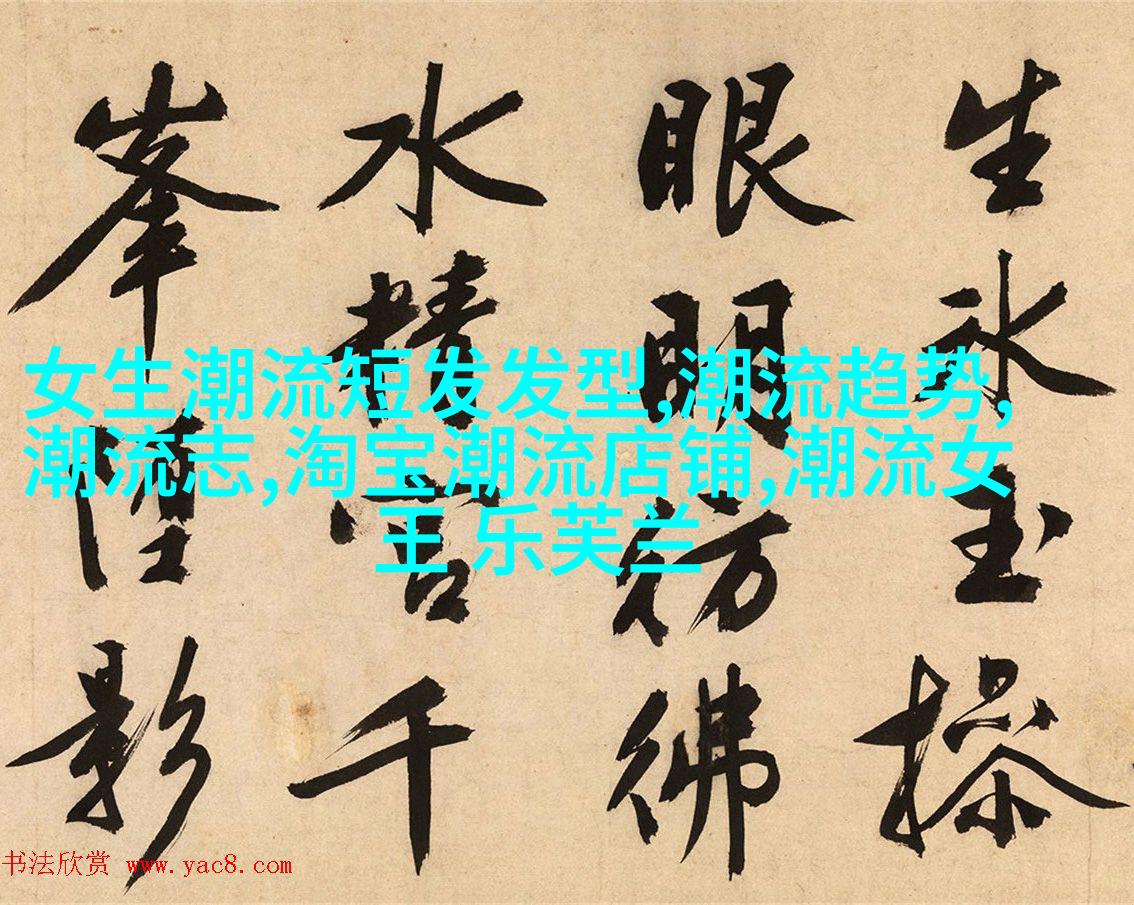 生氷玉操
眼明彷彿
水精宮千
峯墮影
女生潮流短发发型,潮流趋势,
潮流志,淘宝潮流店铺,潮流女
王 乐芙兰
书法欣赏 www.yac8.com